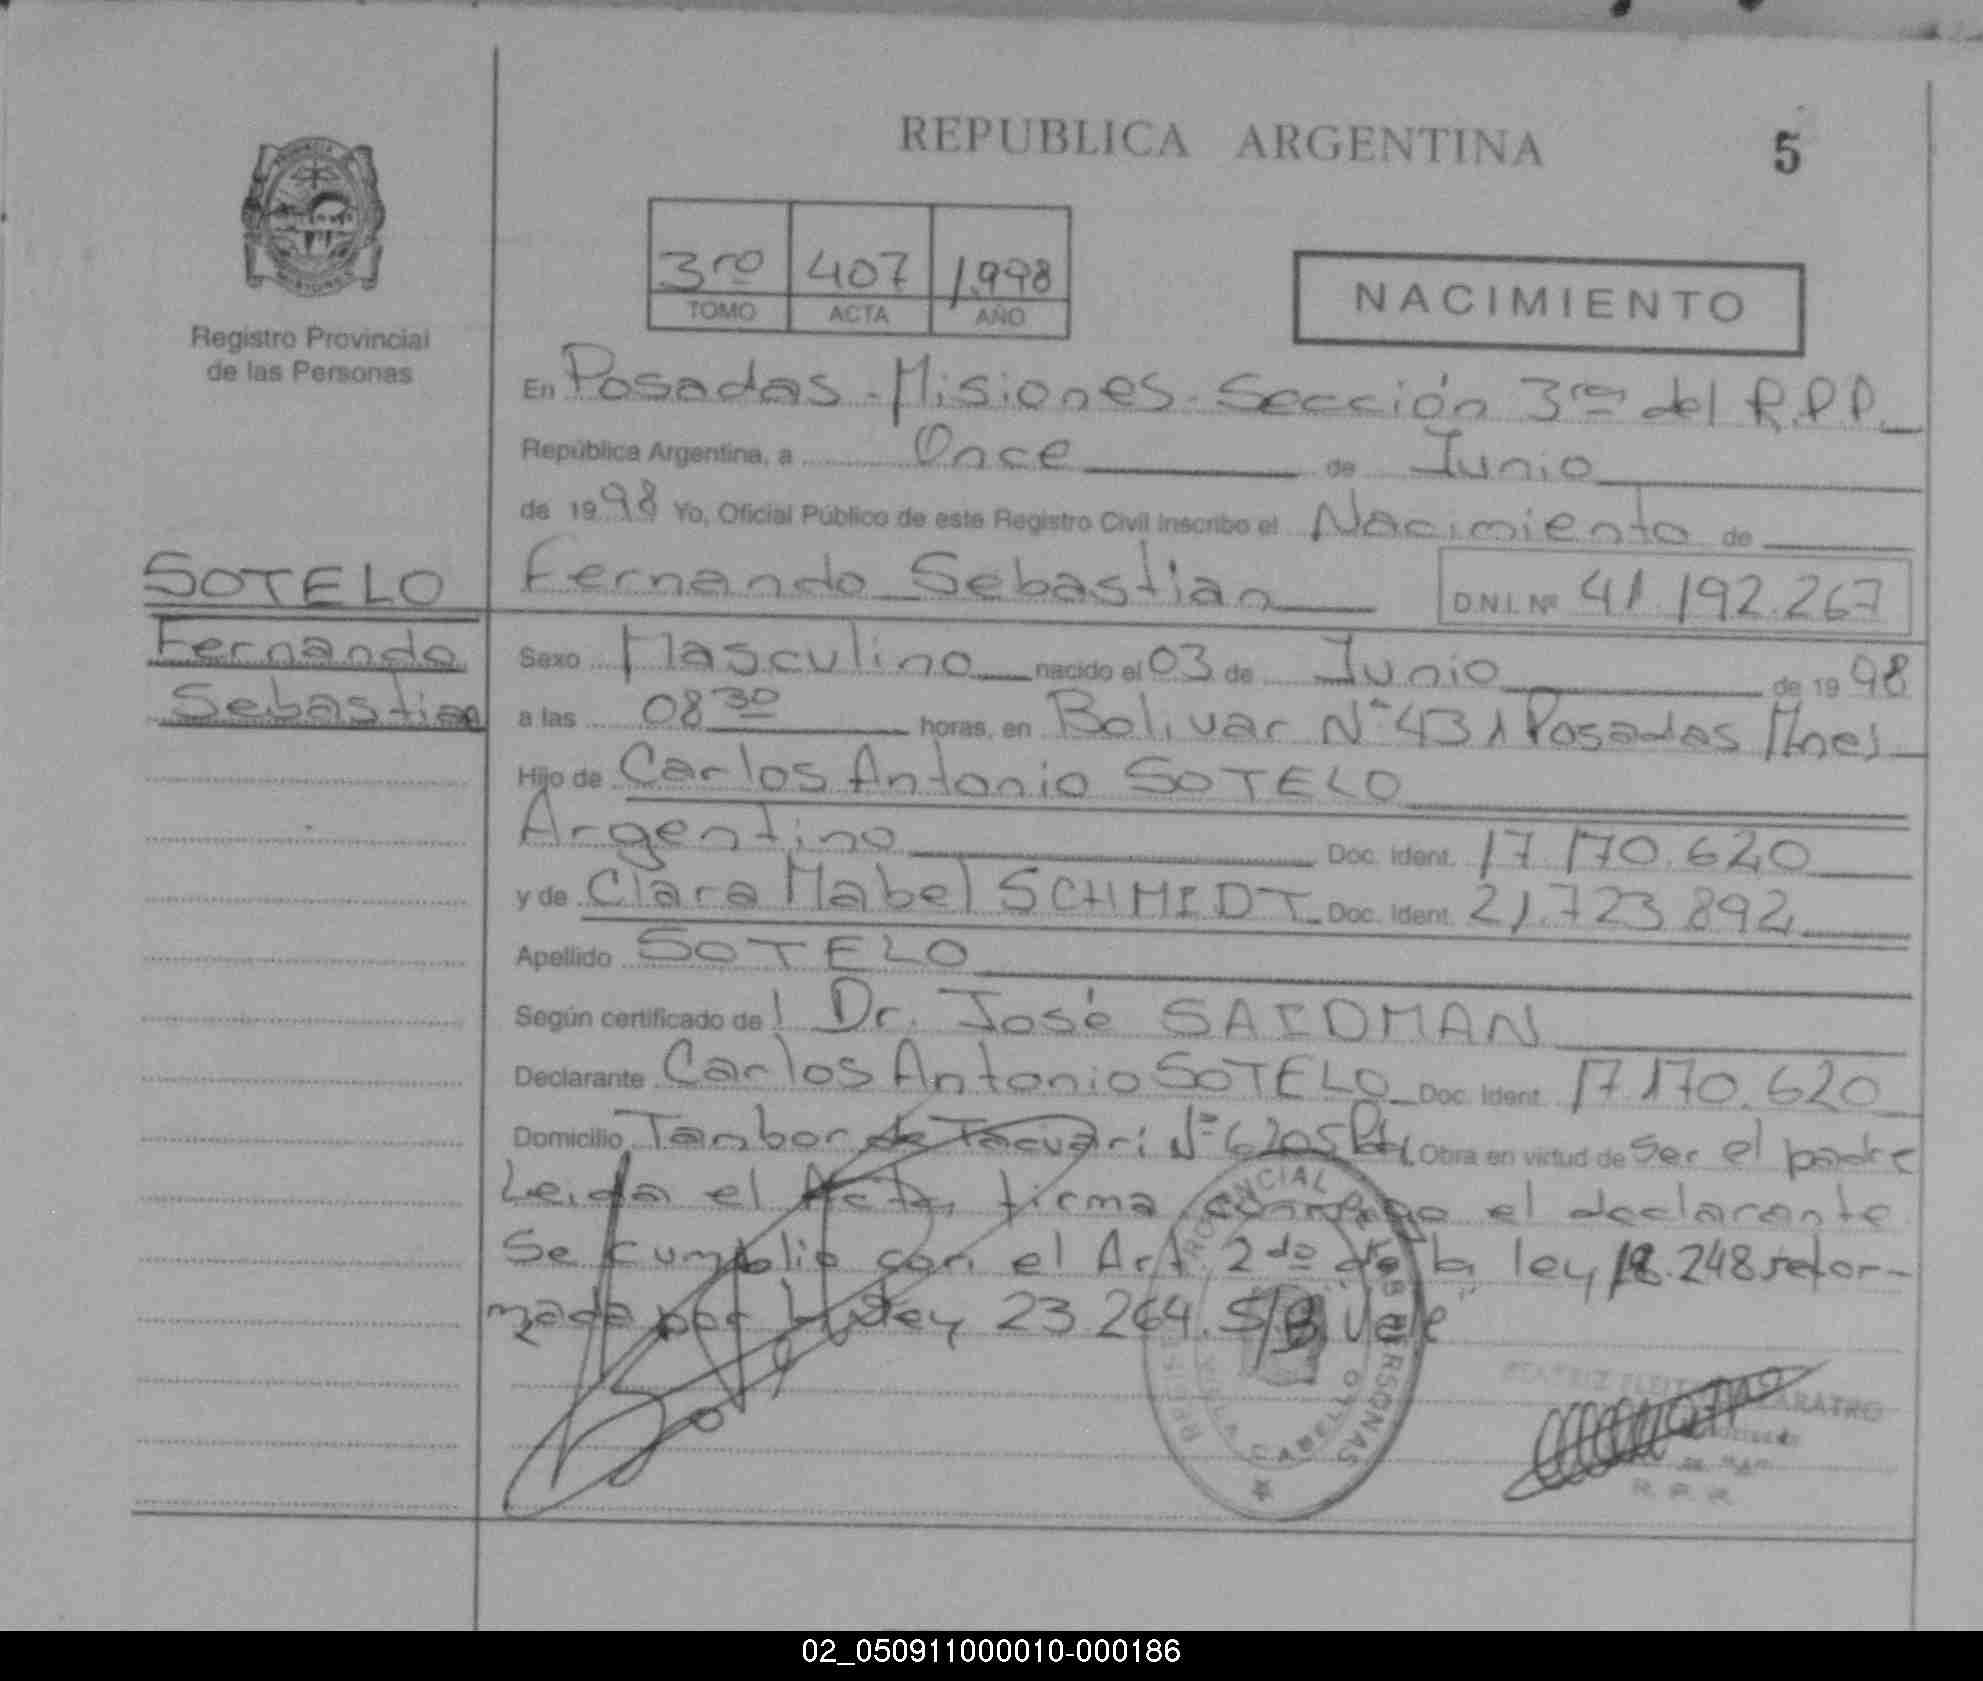 REPUBLICA ARGENTINA
5
3ro 407 1.998
TOMO ACTA AÑO
NACIMIENTO
Registro Provincial
de las Personas
En Posadas - Misiones. Sección 3ra del R.P.P.
República Argentina, a Once de Junio
de 1998 Yo, Oficial Público de este Registro Civil inscribo el Nacimiento de
SOTELO
Fernando
Sebastian
Fernando Sebastian D.N.I. Nº 41.192.267
Sexo Masculino nacido el 03 de Junio de 1998
a las 08 30 horas, en Bolivar Nº 431 Posadas Mnes
Hijo de Carlos Antonio SOTELO
Argentino Doc. Ident. 17.170.620
y de Clara Mabel SCHMIDT Doc. Ident. 21.723.892
Apellido SOTELO
Según certificado del Dr. José SAIDMAN
Declarante Carlos Antonio SOTELO Doc. Ident. 17.170.620
Domicilio Tambor de Tacuari Nº 6205 Obra en virtud de ser el padre
Leida el Acta, firma conmigo el declarante
Se cumplio con el Art. 2do de la ley 18.248 refor-
mada por la ley 23.264. S/B "Vale"
REGISTRO PROVINCIAL DE LAS PERSONAS
VILLA CABELLO
BEATRIZ
R. P. P.
02_050911000010-000186